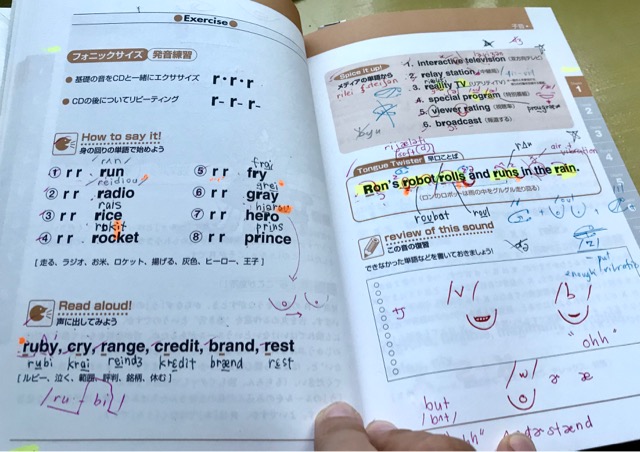 Exercise
フォニックサイズ 発音練習
基礎の音をCDと一緒にエクササイズ r・r・r
CDの後についてリピーティング r- r- r-
How to say it!
身の回りの単語で始めよう
/rʌn/
① r r run
reidiou
② r r radio
rais
③ r r rice
rɒkit
④ r r rocket
frai
⑤ r r fry
grei
⑥ r r gray
⑦ r r hero
prins
⑧ r r prince
[ 走る、ラジオ、お米、ロケット、揚げる、灰色、ヒーロー、王子 ]
Read aloud!
声に出してみよう
ruby, cry, range, credit, brand, rest
rubi krai reindʒ kredit brænd rest
[ ルビー、泣く、範囲、評判、銘柄、休む ]
/ru・bi/
Spice it up!
メディアの単語から
1. interactive television (双方向テレビ)
2. relay station (中継局)
3. reality TV (リアリティTV)
4. special program (特別番組)
5. viewer rating (視聴率)
6. broadcast (報道する)
Tongue Twister 早口ことば
rʌn
Ron's robot rolls and runs in the rain.
(ロンのロボットは雨の中をグルグル走り回る)
roubat roul
review of this sound
この音の復習
できなかった単語などを書いておきましょう!
/v/
/b/
"ohh"
/w/
æ
but
/bʌt/
1
2
3
4
5